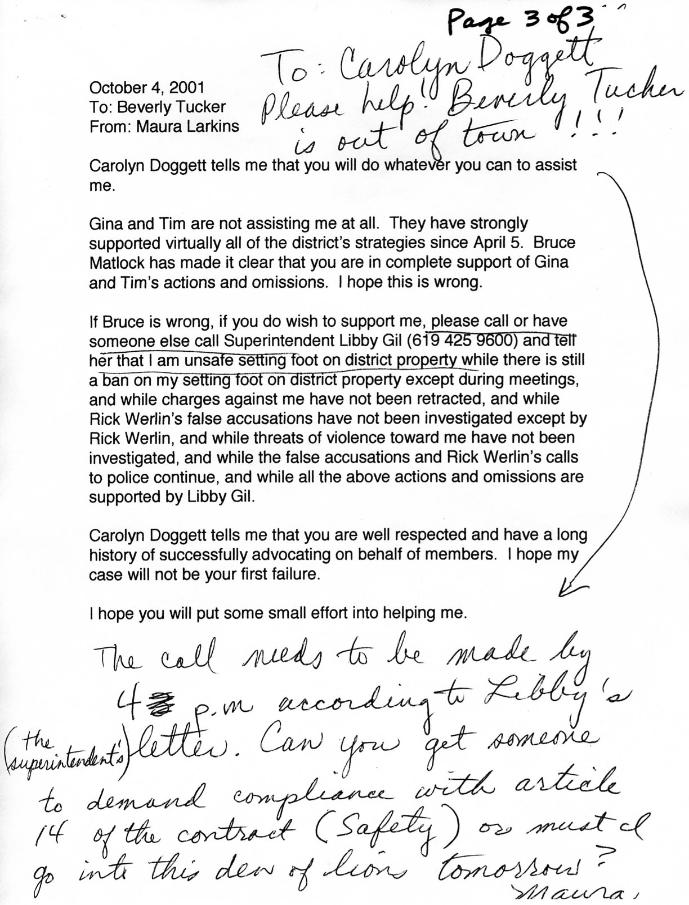 Page 3 of 3
To: Carolyn Doggett
Please help! Beverly Tucker
is out of town !!!
October 4, 2001
To: Beverly Tucker
From: Maura Larkins
Carolyn Doggett tells me that you will do whatever you can to assist
me.
Gina and Tim are not assisting me at all. They have strongly
supported virtually all of the district's strategies since April 5. Bruce
Matlock has made it clear that you are in complete support of Gina
and Tim's actions and omissions. I hope this is wrong.
If Bruce is wrong, if you do wish to support me, please call or have
someone else call Superintendent Libby Gil (619 425 9600) and tell
her that I am unsafe setting foot on district property while there is still
a ban on my setting foot on district property except during meetings,
and while charges against me have not been retracted, and while
Rick Werlin's false accusations have not been investigated except by
Rick Werlin, and while threats of violence toward me have not been
investigated, and while the false accusations and Rick Werlin's calls
to police continue, and while all the above actions and omissions are
supported by Libby Gil.
Carolyn Doggett tells me that you are well respected and have a long
history of successfully advocating on behalf of members. I hope my
case will not be your first failure.
I hope you will put some small effort into helping me.
The call needs to be made by
4 p.m according to Libby's
(the superintendent's) letter. Can you get someone
to demand compliance with article
14 of the contract (Safety) or must I
go into this den of lions tomorrow?
Maura